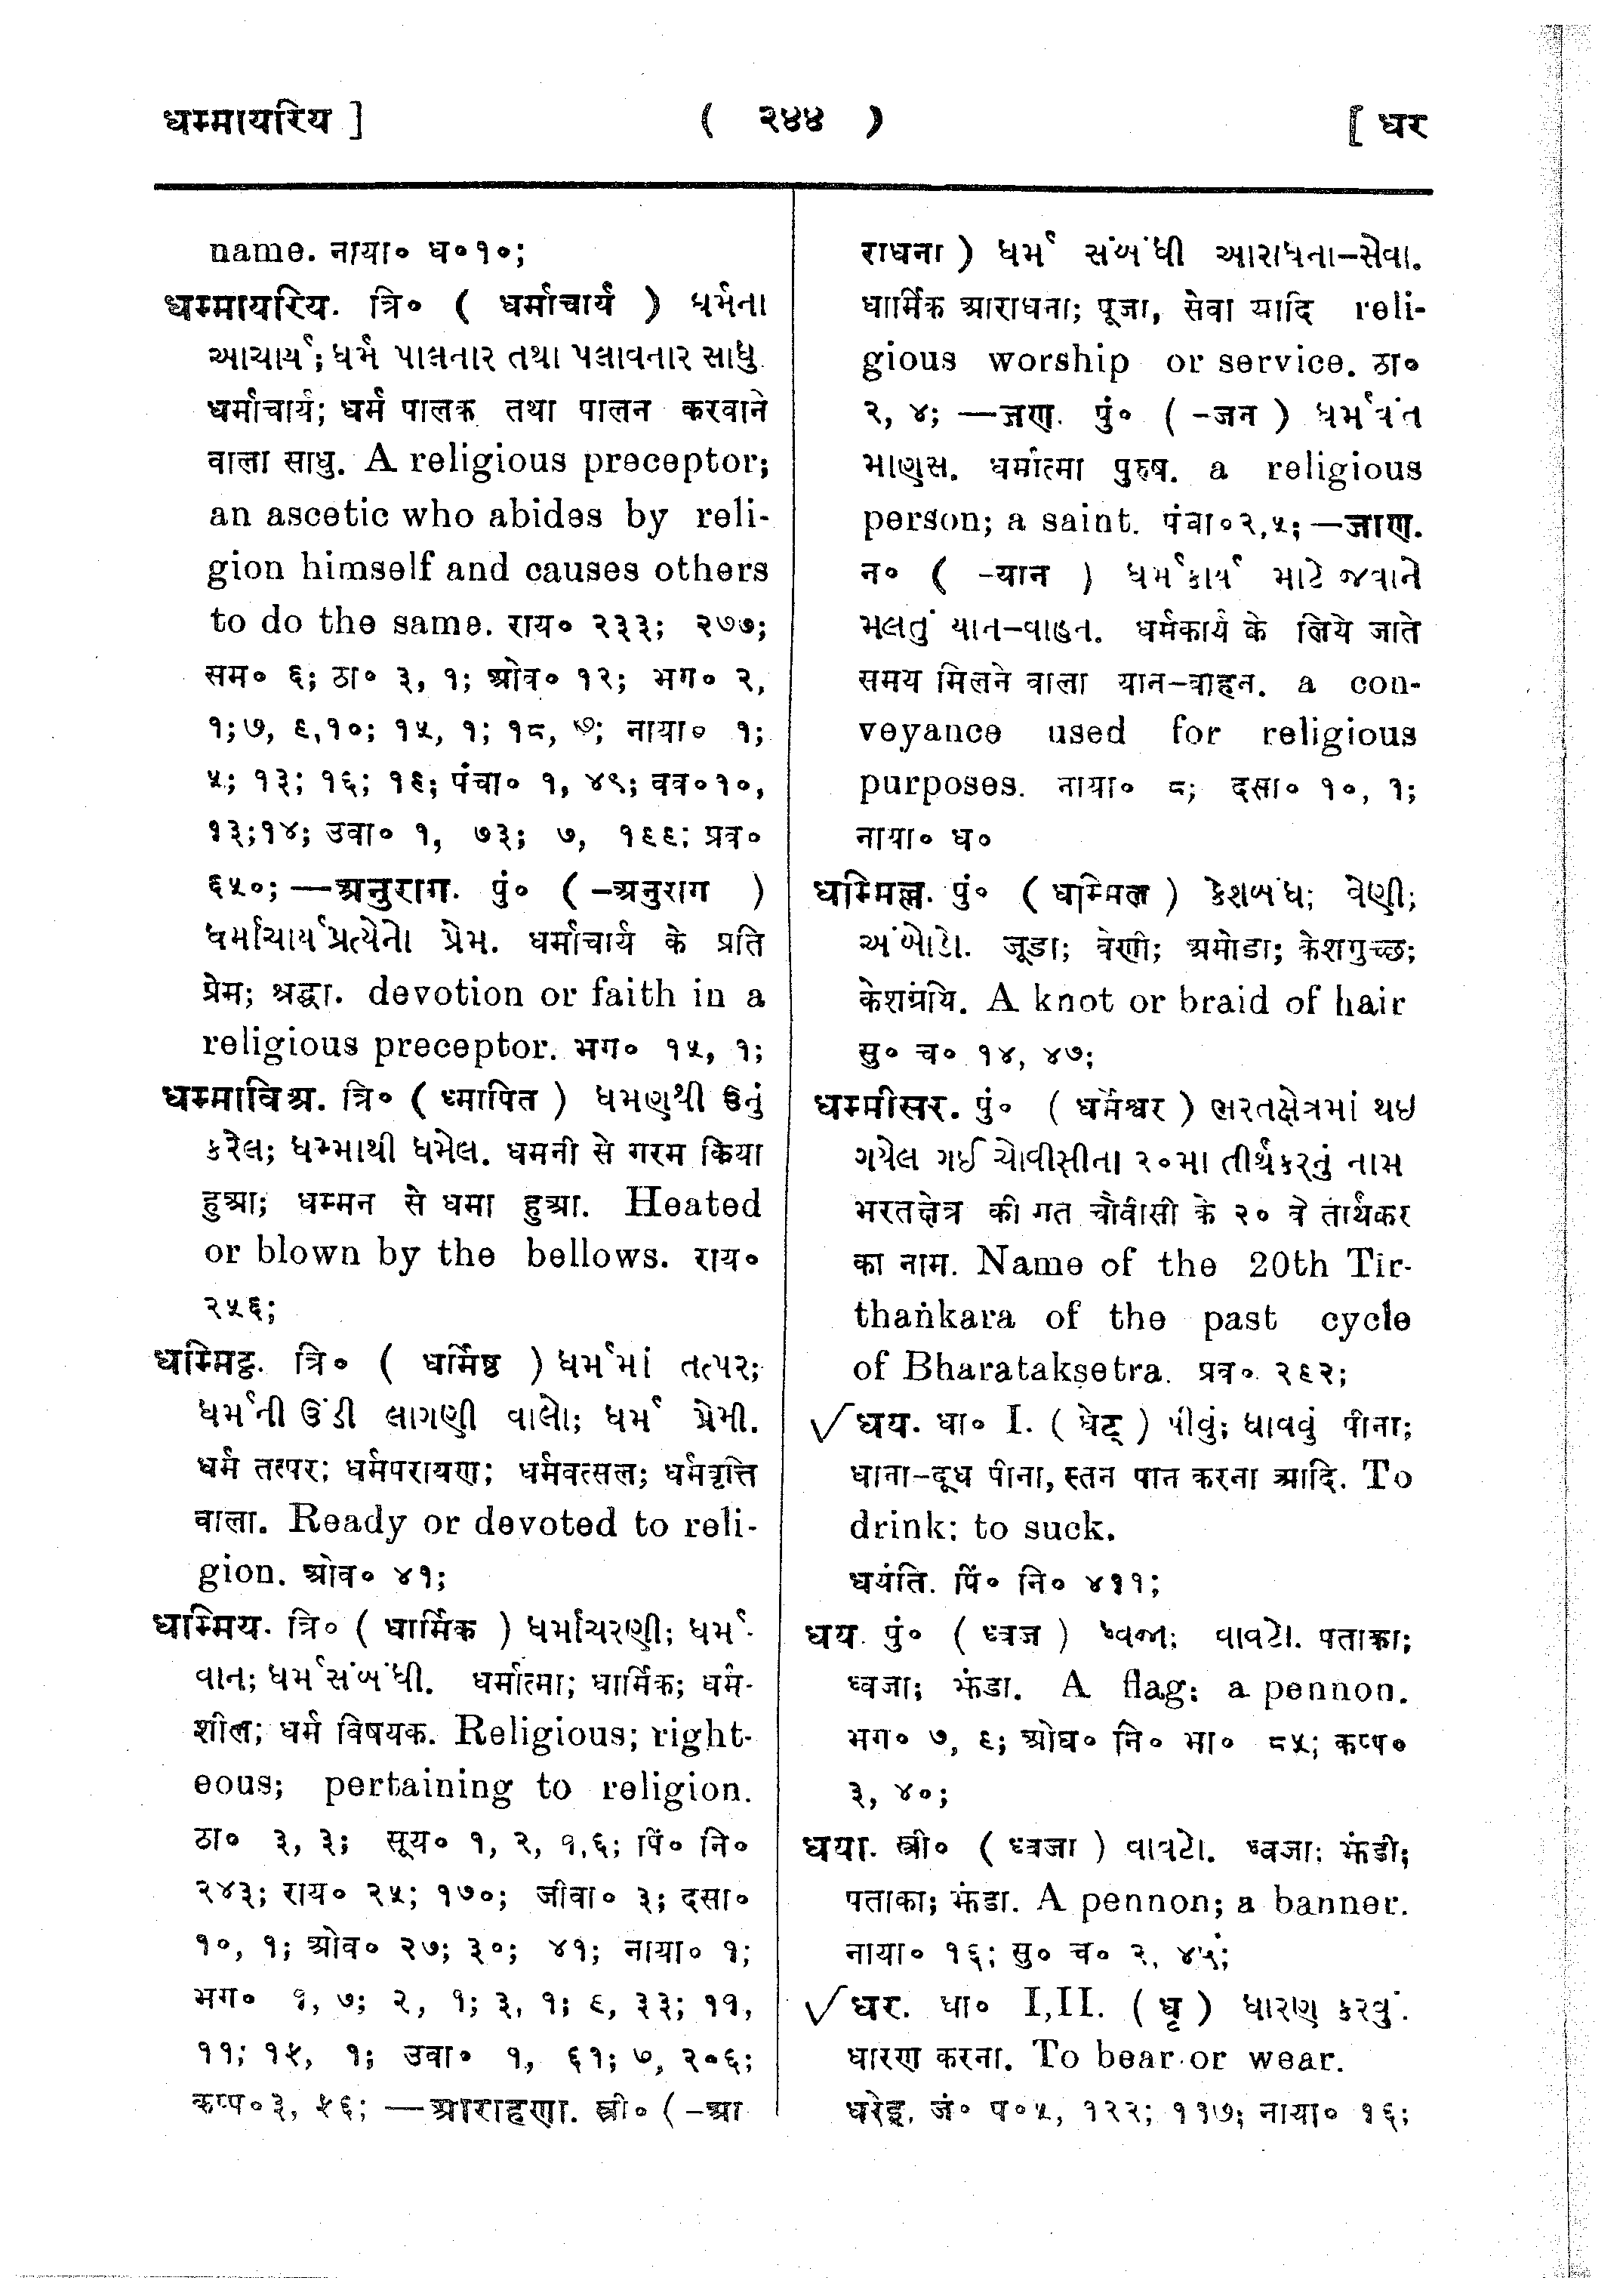 धम्मायरिय ]
( २४४ )
[ धर
name. नाया० ध०१०;
धम्मायरिय. त्रि० ( धर्माचार्य ) ધર્મના
આચાર્ય; ધર્મ પાલનાર તથા પલાવનાર સાધુ
धर्माचार्य; धर्म पालक तथा पालन करवाने
वाला साधु. A religious preceptor;
an ascetic who abides by reli-
gion himself and causes others
to do the same. राय० २३३; २७७;
सम० ६; ठा० ३, १; ओव० १२; भग० २,
१;७, ९,१०; १५, १; १८, ७; नाया० १;
५; १३; १६; १९; पंचा० १, ४९; वव०१०,
१३;१४; उवा० १, ७३; ७, १९९; प्रव०
६५०; —अनुराग. पुं० ( -अनुराग )
ધર્માચાર્યપ્રત્યેનો પ્રેમ. धर्माचार्य के प्रति
प्रेम; श्रद्धा. devotion or faith in a
religious preceptor. भग० १५, १;
धम्माविअ. त्रि० ( ध्मापित ) ધમણથી ઉનું
કરેલ; ધમ્માથી ધમેલ. धमनी से गरम किया
हुआ; धम्मन से धमा हुआ. Heated
or blown by the bellows. राय०
२५६;
धम्मिट्ठ. त्रि० ( धर्मिष्ठ ) ધર્મમાં તત્પર;
ધર્મની ઉંડી લાગણી વાલો; ધર્મ પ્રેમી.
धर्म तत्पर; धर्मपरायण; धर्मवत्सल; धर्मवृत्ति
वाला. Ready or devoted to reli-
gion. ओव० ४१;
धम्मिय. त्रि० ( धार्मिक ) ધર્માચરણી; ધર્મ-
વાન; ધર્મસંબંધી. धर्मात्मा; धार्मिक; धर्म-
शील; धर्म विषयक. Religious; right-
eous; pertaining to religion.
ठा० ३, ३; सूय० १, २, १,६; पिं० नि०
२४३; राय० २५; १७०; जीवा० ३; दसा०
१०, १; ओव० २७; ३०; ४१; नाया० १;
भग० १, ७; २, १; ३, १; ९, ३३; ११,
११; १५, १; उवा० १, ६१; ७, २०६;
कप्प०३, ५६; —आराहणा. स्त्री० ( -आ
राधना ) ધર્મ સંબંધી આરાધના-સેવા.
धार्मिक आराधना; पूजा, सेवा यादि reli-
gious worship or service. ठा०
२, ४; —जण. पुं० ( -जन ) ધર્મવંત
માણસ. धर्मात्मा पुरुष. a religious
person; a saint. पंचा०२,५; —जाण.
न० ( -यान ) ધર્મકાર્ય માટે જવાને
મલતું યાન-વાહન. धर्मकार्य के लिये जाते
समय मिलने वाला यान-वाहन. a con-
veyance used for religious
purposes. नाया० ८; दसा० १०, १;
नाया० ध०
धम्मिल्ल. पुं० ( धम्मिल ) કેશબંધ; વેણી;
અંબોડો. जूडा; वेणी; अमोडा; केशगुच्छ;
केशग्रंथि. A knot or braid of hair
सु० च० १४, ४७;
धम्मीसर. पुं० ( धर्मेश्वर ) ભરતક્ષેત્રમાં થઇ
ગયેલ ગઈ ચોવીસીના ૨૦મા તીર્થંકરનું નામ
भरतक्षेत्र की गत चौवीसी के २० वे तीर्थंकर
का नाम. Name of the 20th Tir-
thaṅkara of the past cycle
of Bharatakṣetra. प्रव० २९२;
√ धय. धा० I. ( धेट् ) પીવું; ધાવવું पीना;
धाना-दूध पीना, स्तन पान करना आदि. To
drink; to suck.
धयंति. पिं० नि० ४११;
धय. पुं० ( ध्वज ) ધ્વજા; વાવટો. पताका;
ध्वजा; झंडा. A flag; a pennon.
भग० ७, ९; ओघ० नि० भा० ८५; कप्प०
३, ४०;
धया. स्त्री० ( ध्वजा ) વાવટો. ध्वजा; झंडी;
पताका; झंडा. A pennon; a banner.
नाया० १६; सु० च० २, ४५;
√ धर. धा० I,II. ( धृ ) ધારણ કરવું.
धारण करना. To bear or wear.
धरेइ. जं० प०५, १२२; ११७; नाया० १६;